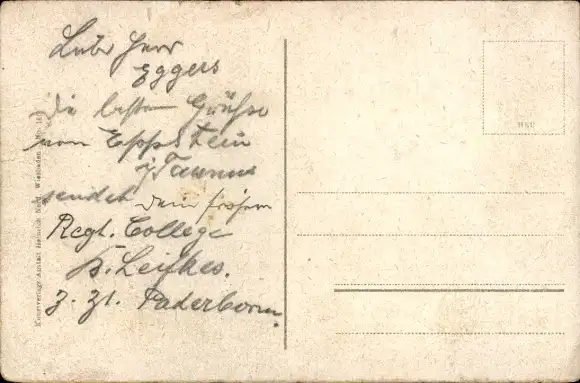 Lieber Herr
Eggers
die besten Grühse
von Eppstein
i/Taunus
sendet Dein früherer
Regt. College
H. Leifkes.
z. Zt. Paderborn.
Kunstverlags-Anstalt Heinrich Wiesbaden. No.